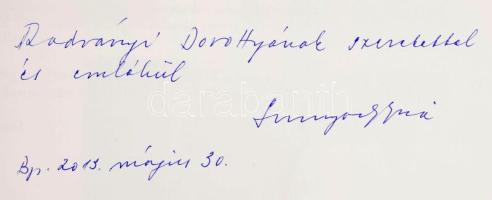 Radványi Dorottyának szeretettel
és emlékül
Bp. 2013. május 30.
darabanth.com